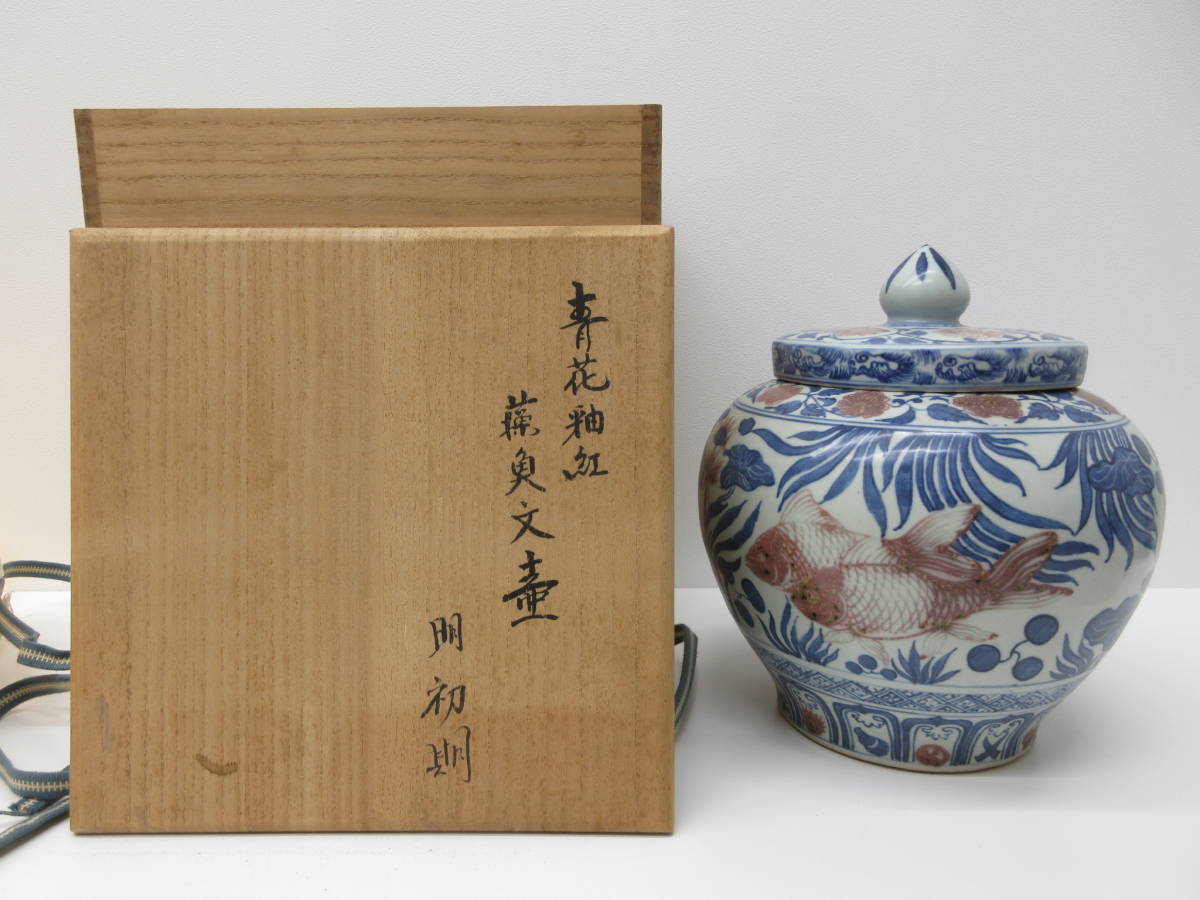 青花釉紅
藻魚文壷
明初期